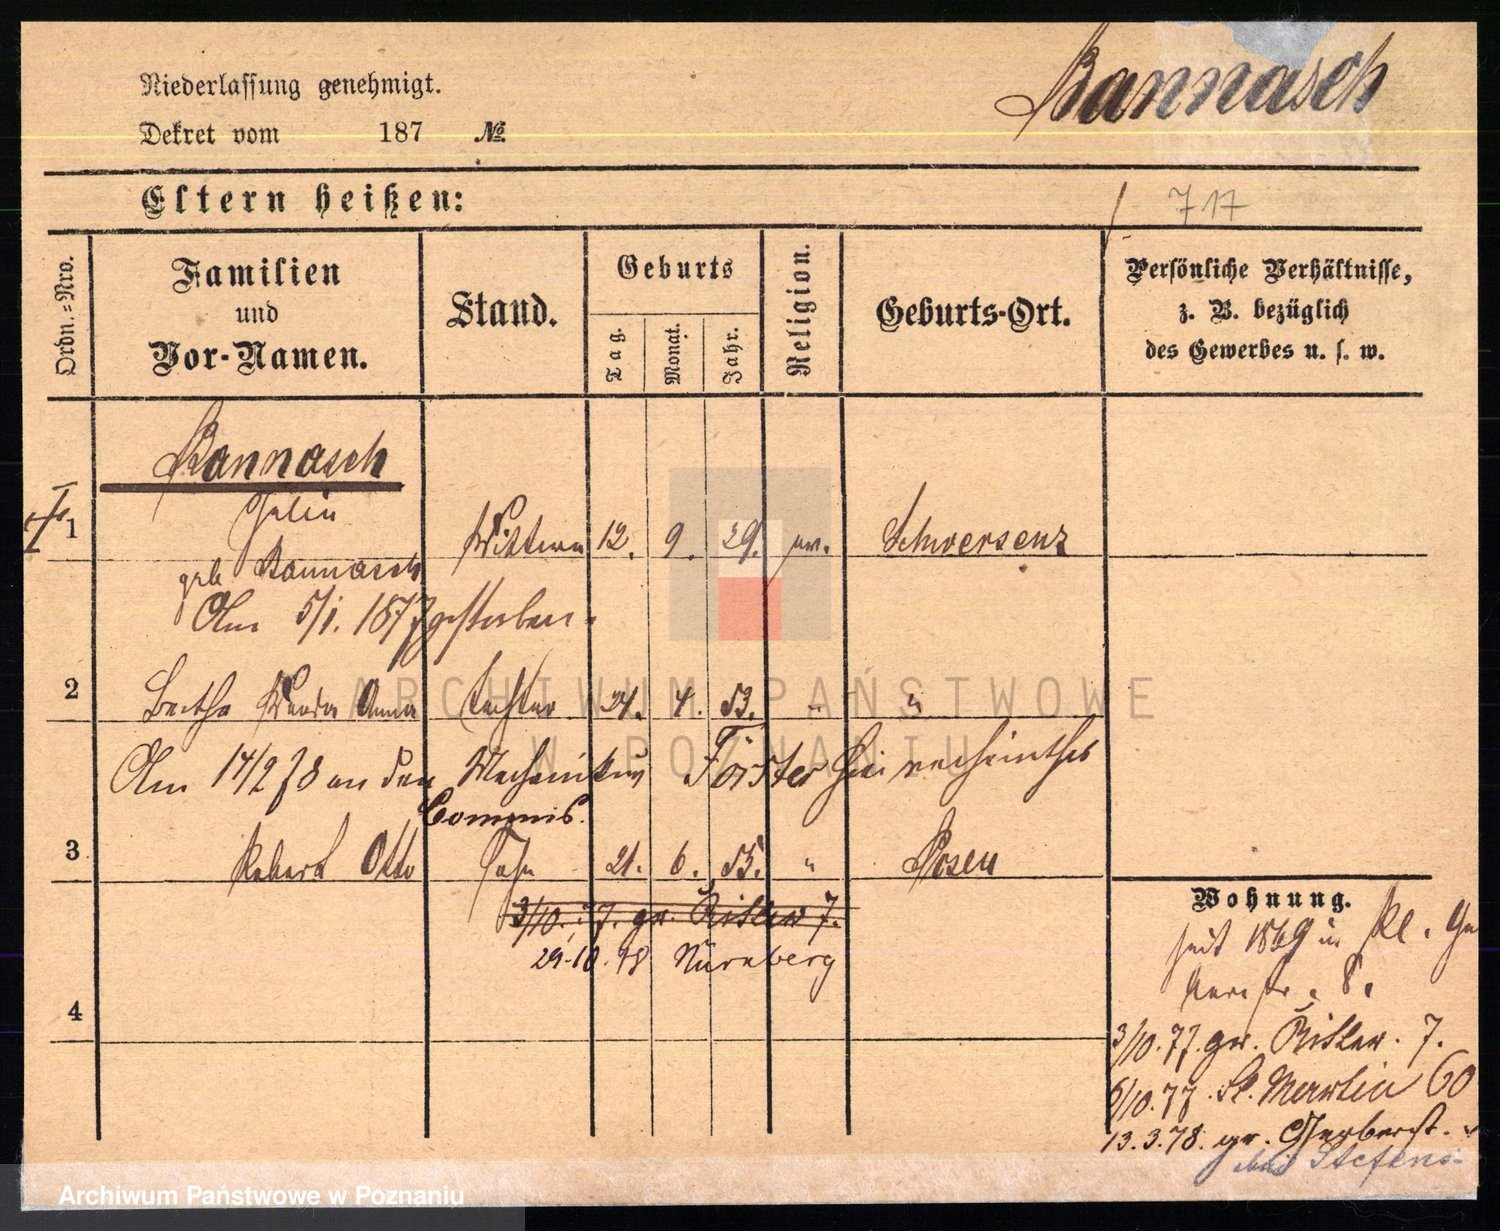 Bannasch
Niederlassung genehmigt.
Dekret vom 187 №
Eltern heißen:
717
Ordn.=Nro.
Familien
und
Vor-Namen.
Stand.
Geburts
Tag.
Monat.
Jahr.
Religion.
Geburts-Ort.
Persönliche Verhältnisse,
z. B. bezüglich
des Gewerbes u. s. w.
Bannasch
1 Wittwe 12. 9. 29. Schwersenz
geb Bannasch
Am 5/1. 1877 gestorben.
2 Bertha Anna Tochter 21. 4. 53. " "
Am 14/2 78 an den Mechanikus Förster hier verheirathet
Commis.
3 Robert Otto Sohn 21. 6. 55. " Posen
3/10. 77. gr. Ritter 7.
29.10.78 Nürnberg
4
Wohnung.
seit 1869 in kl. Ger
berstr. 8.
3/10. 77. gr. Ritter. 7.
6/10. 77. St. Martin 60
13.3.78. gr. Gerberst.
bei Stefens
ARCHIWUM PAŃSTWOWE
W POZNANIU
Archiwum Państwowe w Poznaniu